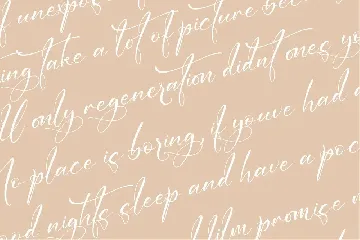 f unexpos
ing take a lot of picture bec
ll only regeneration didnt ones yo
No place is boring, if youve had a
ood nights sleep and have a poc
Film promise